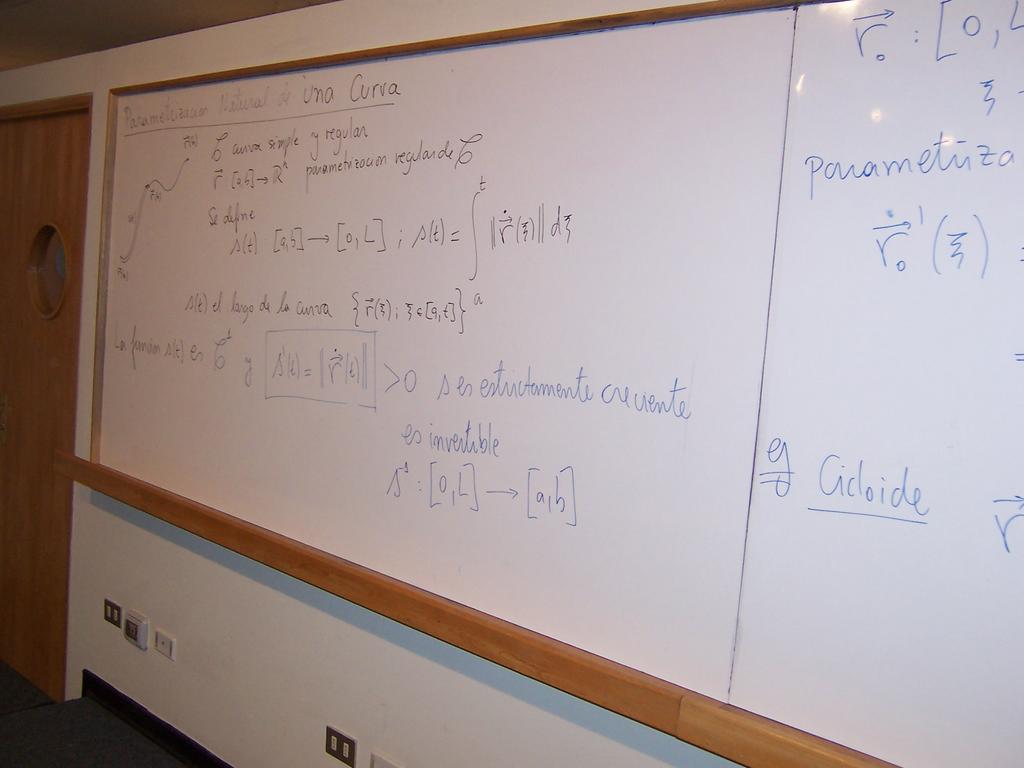 Parametrización Natural de una Curva
r⃗(b)
r⃗(t)
r⃗(a)
𝒞 curva simple y regular
r⃗: [a,b] → ℝⁿ parametrización regular de 𝒞
Se define
s(t) [a,b] → [0,L] ; s(t) = ∫ₐᵗ ‖ṙ⃗(ξ)‖ dξ
s(t) el largo de la curva {r⃗(ξ); ξ∈[a,t]}
La función s(t) es 𝒞¹ y s'(t) = ‖ṙ⃗(t)‖ >0 s es estrictamente creciente
es invertible
s⁻¹: [0,L] → [a,b]
r⃗₀ : [0, L
ξ
parametriza
r⃗₀'(ξ) =
=
ej Cicloide r⃗